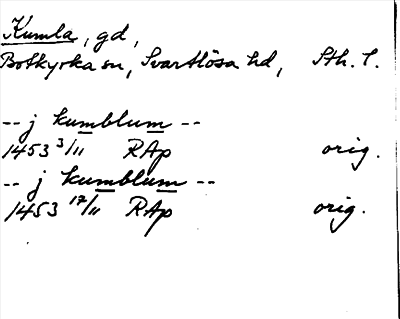 Kumla, gd,
Botkyrka sn, Svartlösa hd, Sth. l.
-- j kumblum --
1453 3/11 RAp orig.
-- j kumblum --
1453 17/11 RAp orig.